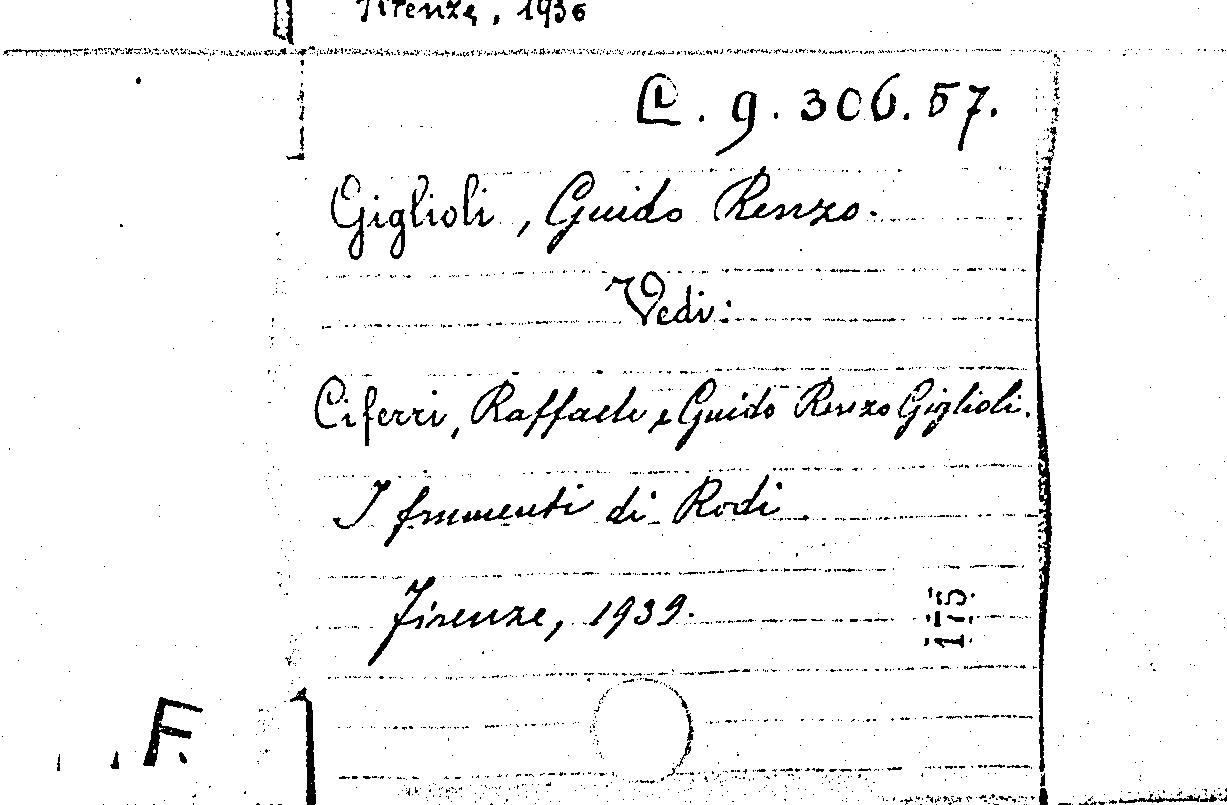 Firenze, 1936
C. 9. 306. 57.
Giglioli, Guido Renzo.
Vedi:
Ciferri, Raffaele e Guido Renzo Giglioli.
I frumenti di Rodi
Firenze, 1939.
175
F.